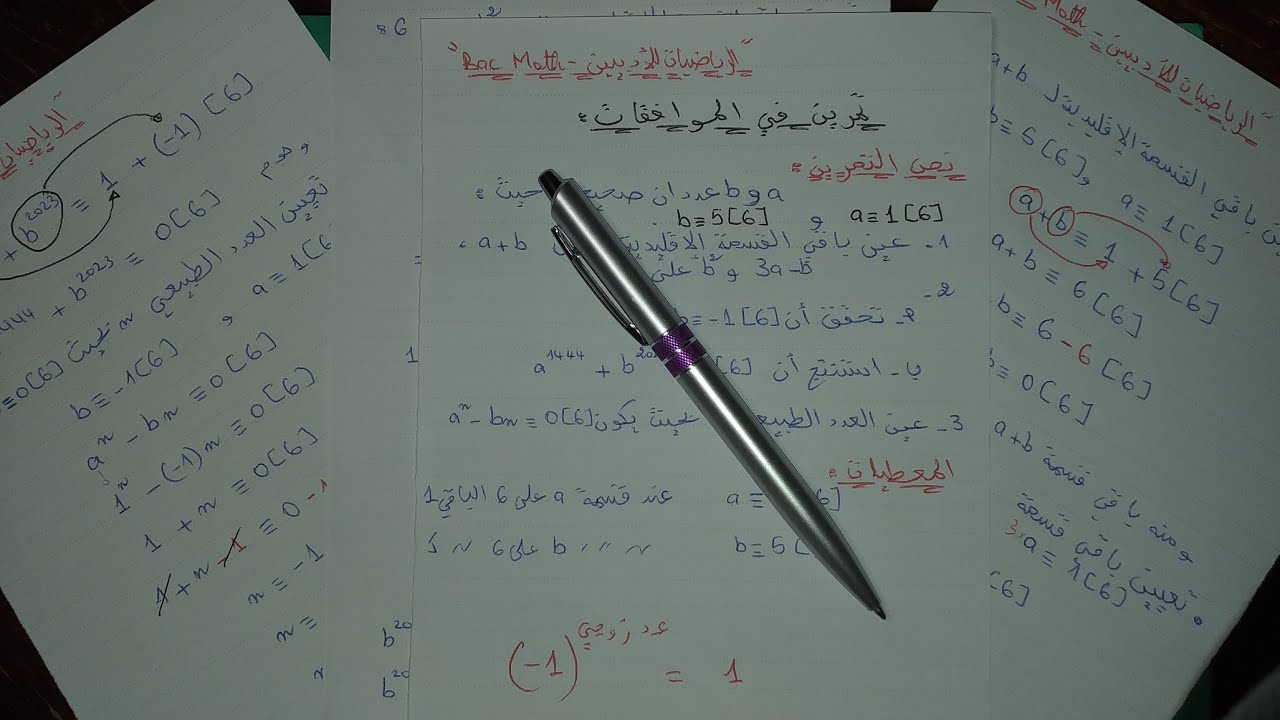 "الرياضيات للأدبيين - Bac Math"
تمرين في الموافقات:
نص التمرين:
a و b عددان صحيحان حيث:
a≡1[6] و b≡5[6]
1- عين باقي القسمة الإقليدية a+b،
3a-b و على
2-
أ- تحقق أن b≡-1[6]
ب- استنتج أن a^1444 + b^20 [6]
3- عين العدد الطبيعي بحيث يكون a^n - bn ≡ 0[6]
المعطيات:
a ≡ 6] عند قسمة a على 6 الباقي 1
b≡5[ " " b على 6 " 5
(-1)^عدد زوجي = 1
8 6
=
1
b^20
b^20
"الرياضيات
+ b^2023 ≡ 1 + (-1) [6]
1444 + b^2023 ≡ 0[6]
تعيين العدد الطبيعي n بحيث ≡0[6]
b≡-1[6] و a≡1[6
a^n - bn ≡ 0[6]
1^n - (-1)n ≡ 0[6]
1 + n ≡ 0[6]
1 + n - 1 ≡ 0 - 1
n ≡ -1
n ≡
n
"الرياضيات للأدبيين - Math
باقي القسمة الإقليدية لـ a+b
b≡5[6] و a≡1[6]
a + b ≡ 1 + 5[6]
a+b ≡ 6[6]
b ≡ 6 - 6 [6]
b ≡ 0[6]
ومنه باقي قسمة a+b
• تعيين باقي قسمة
3 a ≡ 1[6]
[6]